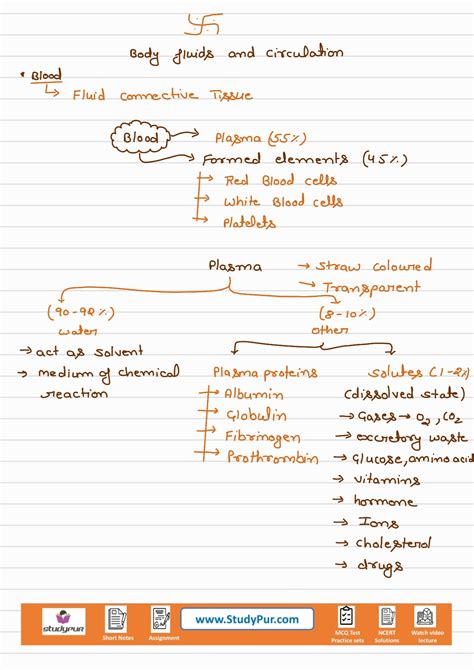 Body fluids and circulation
* Blood
→ Fluid connective Tissue
Blood → Plasma (55%)
→ Formed elements (45%)
→ Red Blood cells
→ White Blood cells
→ Platelets
Plasma → Straw coloured
→ Transparent
(90-92%) (8-10%)
water other
→ act as solvent
→ medium of chemical reaction
Plasma proteins
→ Albumin
→ Globulin
→ Fibrinogen
→ Prothrombin
solutes (1-2%)
(dissolved state)
→ Gases → O2, CO2
→ excretory waste
→ Glucose, amino acid
→ vitamins
→ hormone
→ Ions
→ Cholesterol
→ drugs
studypur
Short Notes
Assignment
www.StudyPur.com
MCQ Test Practice sets
NCERT Solutions
Watch video lecture